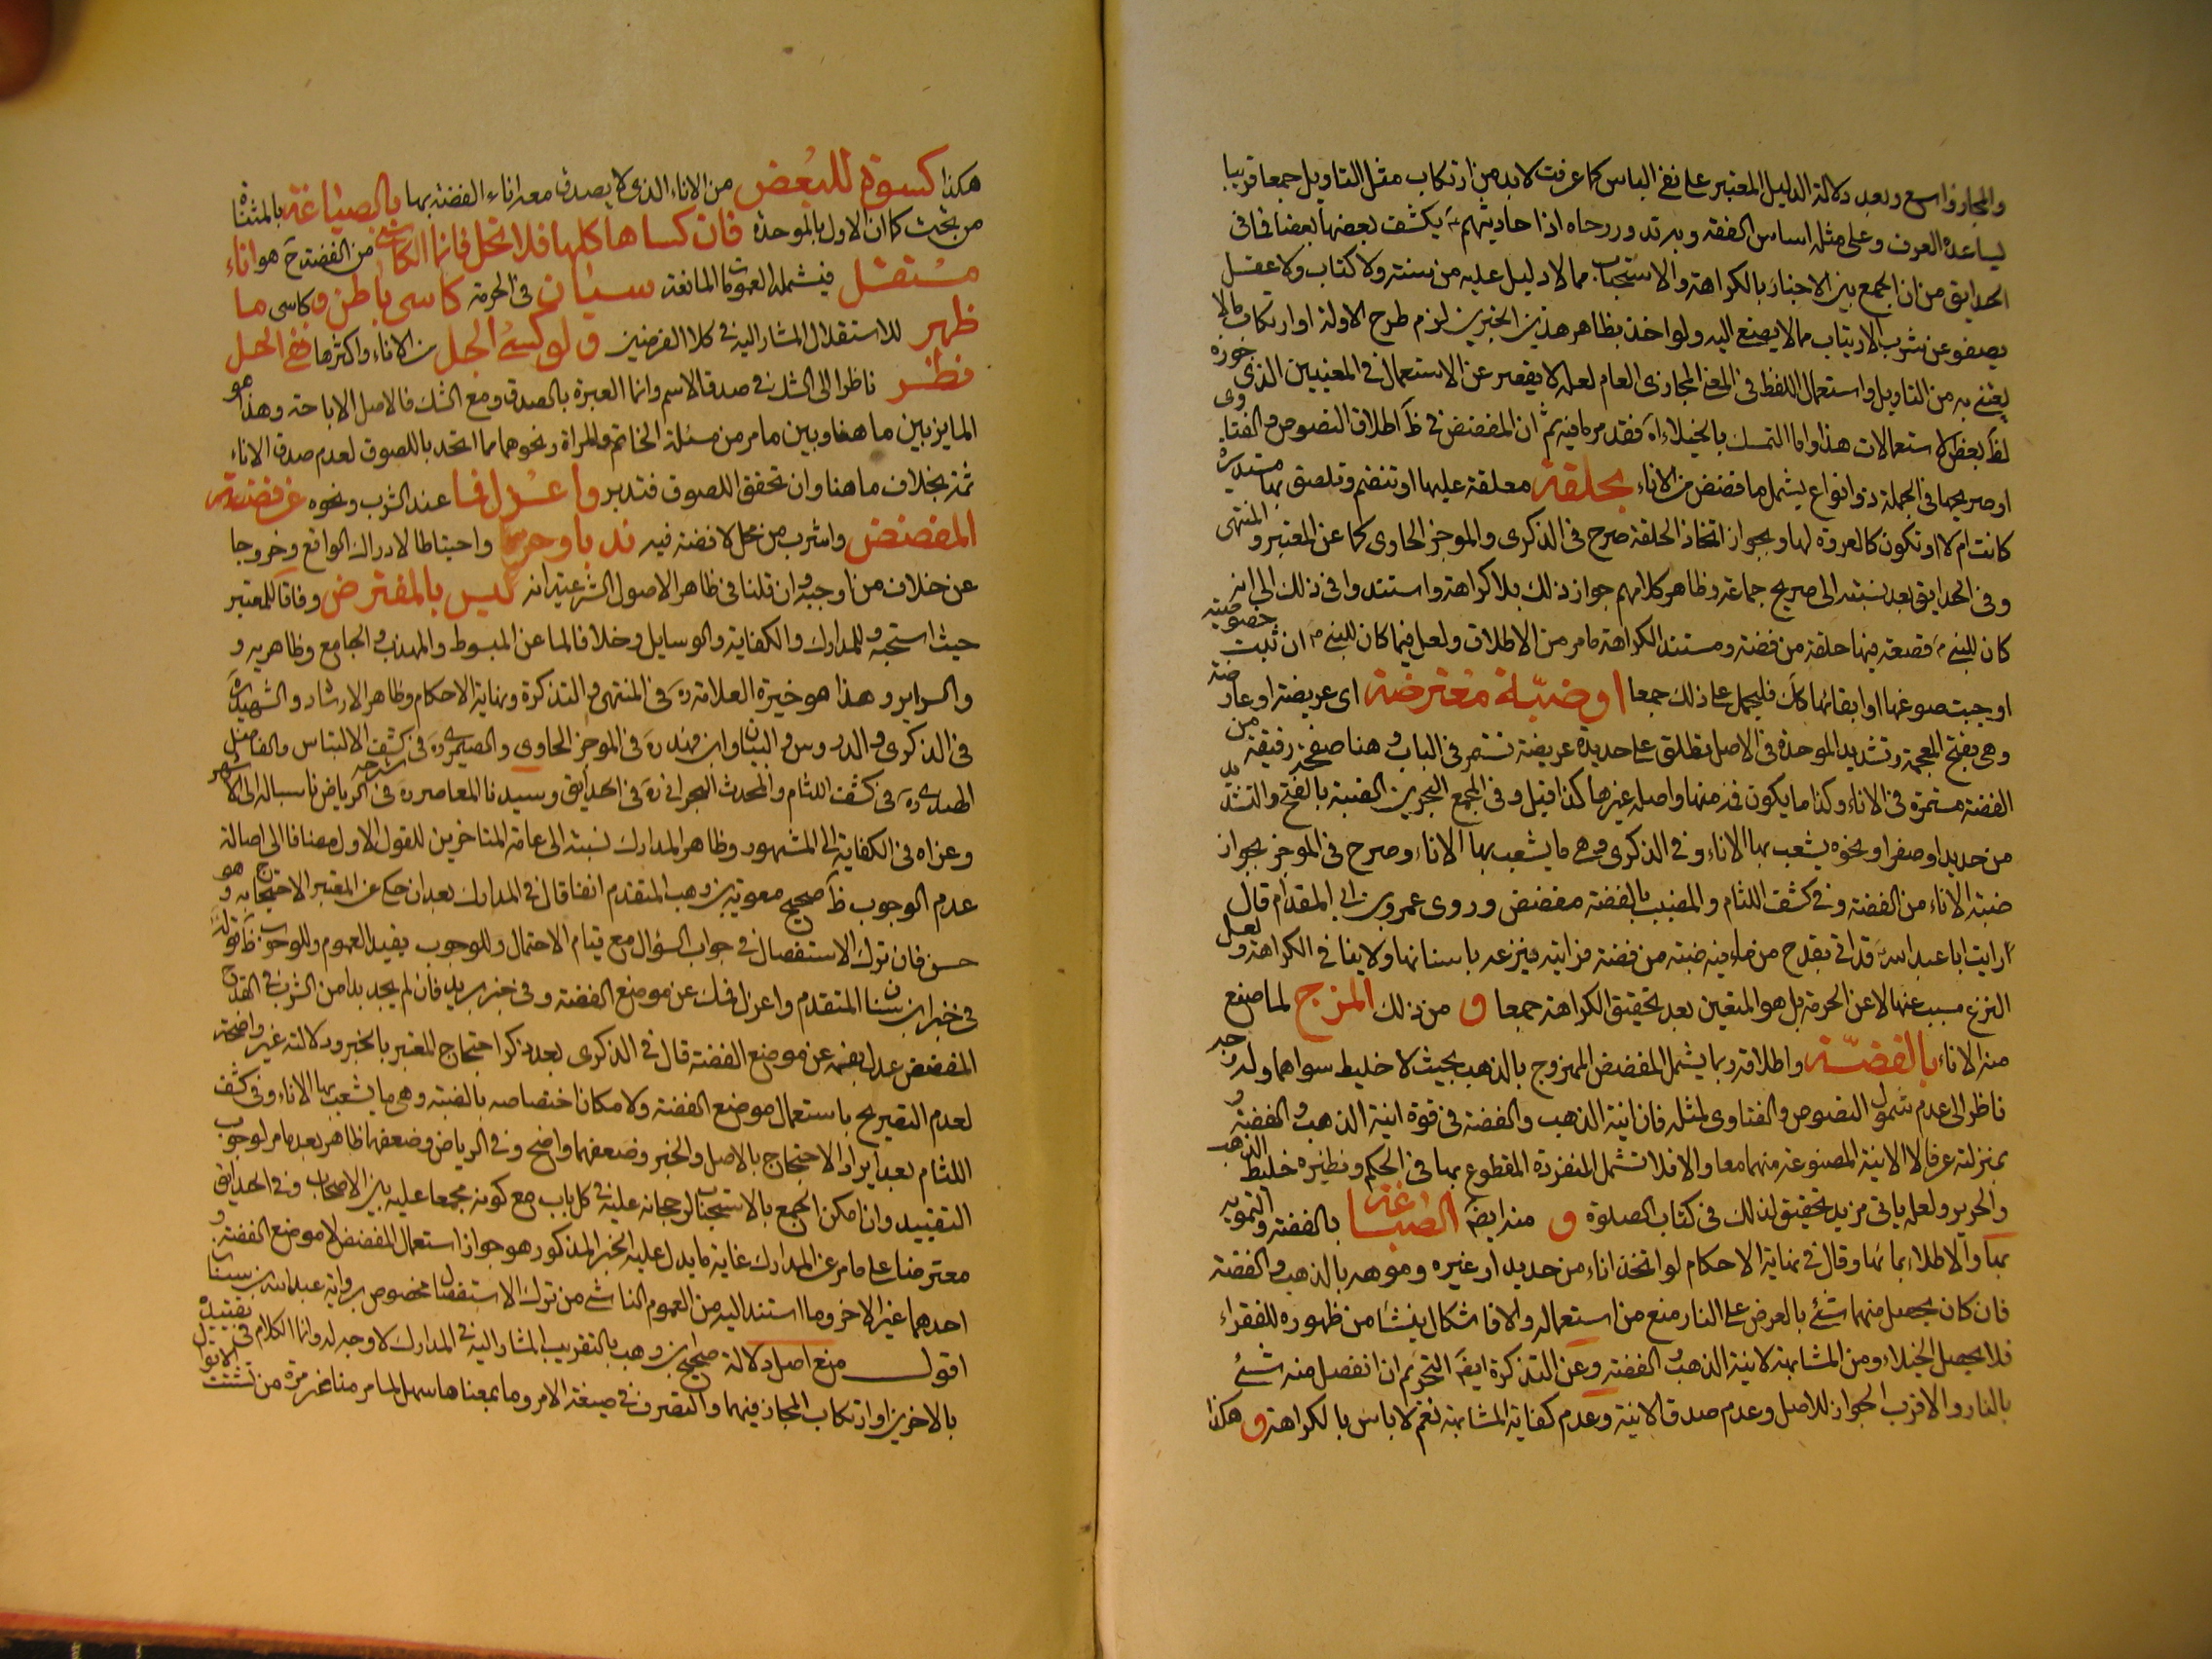 والمجاز واسع وبعد دلالة الدليل المعتبر على نفي الباس كما عرفت لابد من ارتكاب مثل التاويل جمعا قريبا
يساعده العرف وعلى مثله اساس الفقه وبه تدور رحاه اذ احاديثهم يكشف بعضها بعضا فما في
الحدايق من ان الجمع بين الاخبار بالكراهة والاستحباب مما لا دليل عليه من سنة ولا كتاب ولا عقل
يصفو عن شرب الارتياب مما لا يصغ اليه ولو اخذ بظاهر هذين الخبرين لزم طرح الاولة او ارتكاب مالا
يعتنى به من التاويل واستعمال اللفظ في المعنى المجازى العام لعله لا يقصر عن الاستعمال في المعنيين الذي جوزه
لظ بعض الاستعمالات هذا واما التمسك بالخيلاء اه فقد مر ما فيه ثم ان المفضض في ظ اطلاق النصوص والفتاوى
او صريحها في الجملة ذو انواع يشمل ما فضض من الاناء بحلقة معلقة عليها او تنضم وتلصق بها مستديرة
كانت ام لا او تكون كالعروة لها وبجواز اتخاذ الحلقة صرح في الذكرى والموجز الحاوى كما عن المعتبر والمنتهى
وفي الحدايق بعد نسبته الى صريح جماعة وظاهر كلامهم جواز ذلك بلا كراهة واستندوا في ذلك الى انه
كان للنبي ص قصعة فيها حلقة من فضة ومستند الكراهة ما مر من الاطلاق ولعل فيما كان للنبي ص ان ثبت خصوصية
اوجبت صوغها او ابقائها كك فليحمل على ذلك جمعا او ضبّة معترضة اى عريضة او عارضة
وهي بفتح المعجمة وتشديد الموحدة في الاصل يطلق على حديدة عريضة تسمر في الباب وهنا صفحة رقيقة من
الفضة مستمرة في الاناء وكذا ما يكون قدر منها واصله غيرها كذا قيل وفي المجمع البحرين الضبة بالفتح والتشديد
من حديد او صفر او نحوه يشعب بها الاناء وفي الذكرى وهي ما يشعب بها الاناء وصرح في الموجز بجواز
ضبة الاناء من الفضة وفي كشف اللثام والمضبب بالفضة مفضض وروى عمرو بن ابي المقدام قال
رايت ابا عبد الله ع قد اتي بقدح من ماء فيه ضبة من فضة فرايته ينزعه باسنانها ولا ينافي الكراهة ولعل
النزع مسبب عنها لا عن الحرمة بل هو المتعين بعد تحقيق الكراهة جمعا و من ذلك المزج لما صنع
منه الاناء بالفضّة واطلاقه ربما يشمل المفضض الممزوج بالذهب بحيث لا خليط سواهما وله وجه
ناظر الى عدم شمول النصوص والفتاوى لمثله فان انية الذهب والفضة في قوة انية الذهب والفضة و
بمنزلته عرفا لا الانية المصنوعة منهما معا والا فلا تشمل المنفردة المقطوع بها في الحكم ونظيره خليط الذهب
والحرير ولعله ياتي مزيد تحقيق لذلك في كتاب الصلوة و منه ايض الصباغة بالفضة والتمويه
بها والاطلاء بمائها وقال في نهاية الاحكام لو اتخذ اناء من حديد او غيره وموهه بالذهب والفضة
فان كان يحصل منهما شئ بالعرض على النار منع من استعماله والا فاشكال ينشا من ظهوره للفقراء
فلا يحصل الخيلاء ومن المشابهة لانية الذهب والفضة وعن التذكرة ايض التحريم ان انفصل منه شئ
بالنار والاقرب الجواز للاصل وعدم صدق الانية وعدم كفاية المشابهة نعم لا باس بالكراهة و هكذا
هكذا كسوة للبعض من الاناء الذي لا يصدق معه اناء الفضة بها بالصياغة بالمثناة
من تحت كما ان الاول بالموحدة فان كساها كلها فلا تحل فانما الكاسي من الفضة ح هو اناء
مستقل فيشمله العمومات المانعة سيان في الحرمة كاسي باطن و كاسى ما
ظهر للاستقلال المشار اليه في كلا الفرضين و لو كسي الجل من الاناء واكثرها ففي الحل
نظر ناظر الى الشك في صدق الاسم وانما العبرة بالصدق ومع الشك فالاصل الاباحة وهذا هو
المايز بين ما هنا وبين ما مر من مسئلة الخاتم والمراة ونحوهما مما اتحد باللصوق لعدم صدق الاناء
ثمة بخلاف ما هنا وان تحقق اللصوق فتدبر واعزل فا عند الشرب ونحوه عن فضة
المفضض واشرب من محل لا فضة فيه ندبا وحزما واحتياطا لادراك الواقع وخروجا
عن خلاف من اوجبه وان قلنا في ظاهر الاصول الشرعية انه ليس بالمفترض وفاقا للمعتبر
حيث استحبه وللمدارك والكفاية والوسايل وخلافا لما عن المبسوط والمهذب والجامع وظاهر يه و
والسراير وهذا هو خيرة العلامة ره في المنتهى والتذكرة ونهاية الاحكام وظاهر الارشاد والشهيد ره
في الذكرى والدروس والبيان وابن فهد ره في الموجز الحاوى والصيمري ره في كشف الالتباس والفاضل
الهندي ره في كشف اللثام والمحدث البحراني ره في الحدايق وسيدنا المعاصر ره في شرحه الرياض ناسبا له الى الاشهر
وعزاه في الكفاية الى المشهور وظاهر المدارك نسبته الى عامة المتاخرين للقول الاول مضافا الى اصالة
عدم الوجوب ظ صحيح معوية بن وهب المتقدم انفا قال في المدارك بعد ان حكى عن المعتبر الاحتجاج به و هو
حسن فان ترك الاستفصال في جواب السؤال مع قيام الاحتمال وللوجوب يفيد العموم وللوجوب ظ قوله ع
في خبر ابن سنان المتقدم واعزل فمك عن موضع الفضة وفي خبر بريد فان لم يجد بدا من الشرب في القدح
المفضض عدل بفمه عن موضع الفضة قال في الذكرى بعد ذكر احتجاج المعتبر بالخبر ودلالته غير واضحة
لعدم التصريح باستعمال موضع الفضة ولامكان اختصاصه بالضبة وهي ما يشعب بها الاناء وفي كشف
اللثام بعد ايراد الاحتجاج بالاصل والخبر وضعفهما واضح وفي الرياض وضعفهما ظاهر بعد ما مر لوجوب
التقييد وان امكن الجمع بالاستحباب لرجحانه عليه في كل باب مع كونه مجمعا عليه بين الاصحاب وفي الحدايق
معترضا على ما مر عن المدارك غاية ما يدل عليه الخبر المذكور هو جواز استعمال المفضض لا موضع الفضة و
احدهما غير الاخر وما استند اليه من العموم الناشي من ترك الاستفصال مخصوص برواية عبد الله بن سنان
اقول منع اصل دلالة صحيح بن وهب بالتقريب المشار اليه في المدارك لا وجه له وانما الكلام في تقييده
بالاخرين او ارتكاب المجاز فيهما والتصرف في صيغة الامر وما بمعناها سهل لما مر منا غير مرة من تشتت الابواب